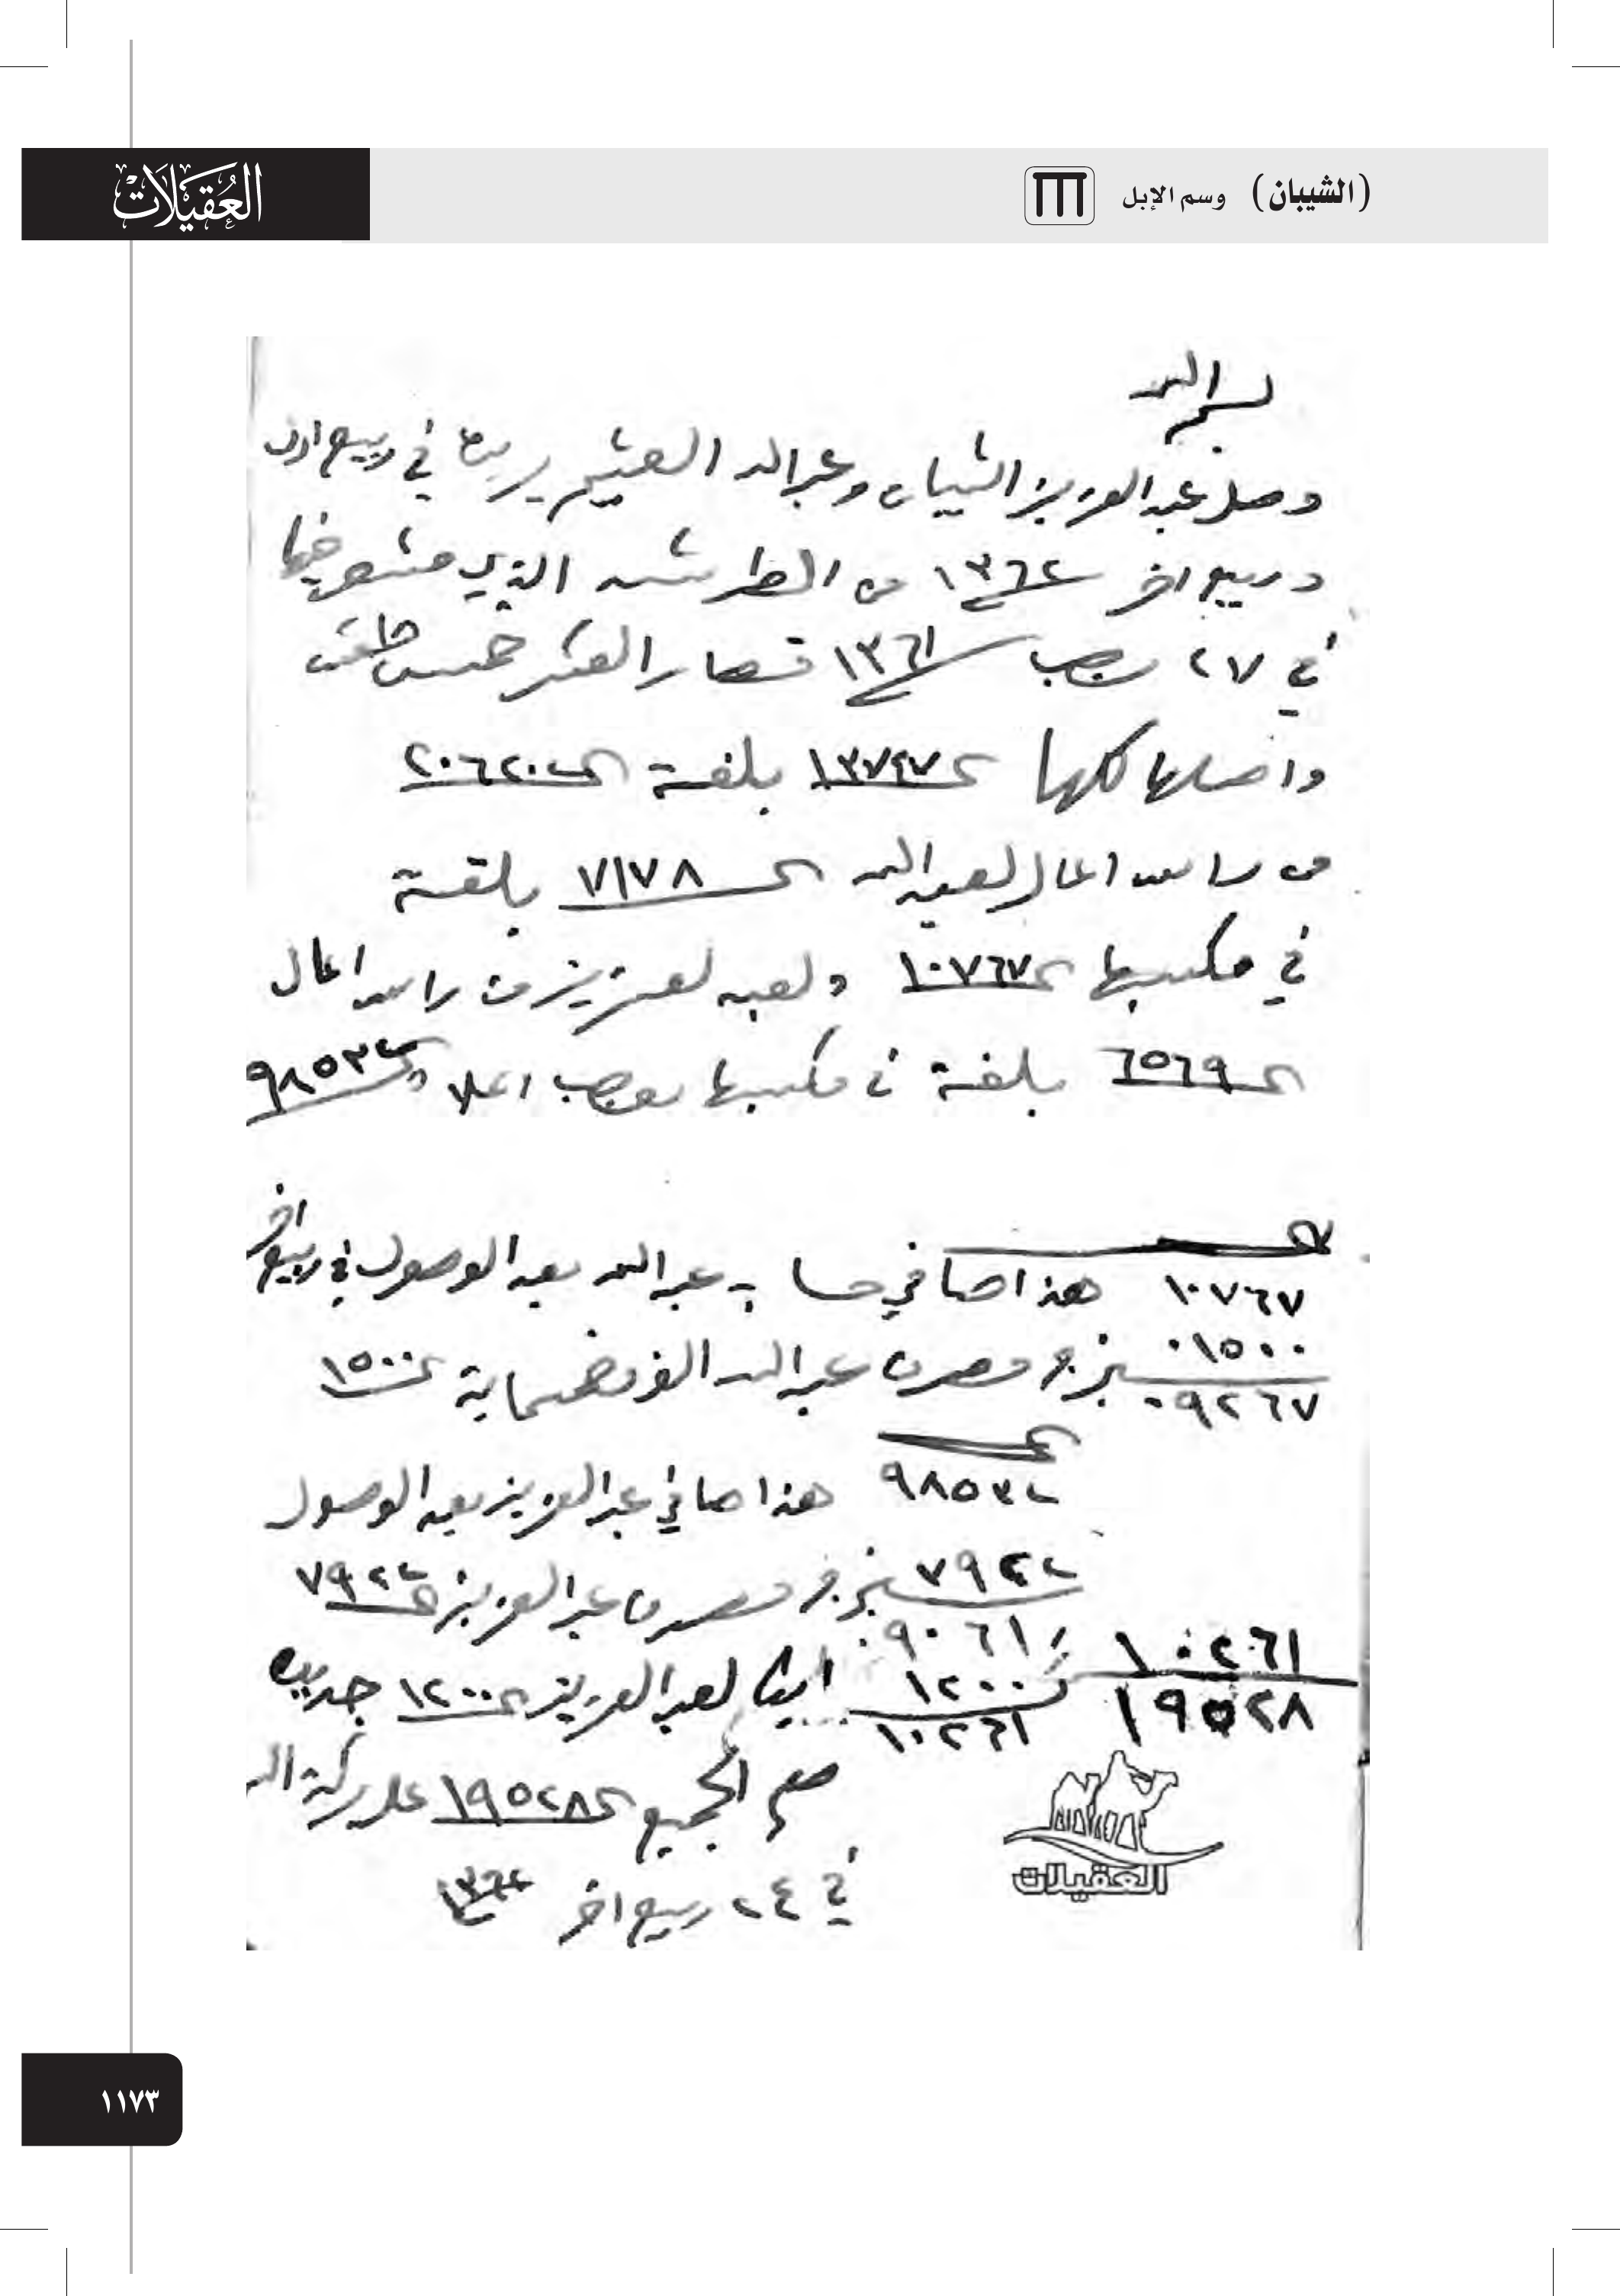 (الشيبان) وسم الإبل
العُقيلات
بسم الله
وصل عبدالعزيز الشيبان وعبدالله العثيم بريدة في ربيع اول
وربيع اخر ١٣٦٢ من الطرشه الذي مشو فيها
في ٢٧ رجب ١٣٦١ فصار العشر خمس طعش
واصلها كلها ١٣٧٤٧ بلغت ٢٠٦٢٠
من راس امال لعبدالله ٧١٧٨ بلغت
في مكسبها ١٠٧٦٧ ولعبد لعزيز من راس امال
٦٥٦٩ بلغت في مكسبها بموجب اعلاه ٩٨٥٣
١٠٧٦٧ هذا صافي حساب عبدالله بعد الوصول في ربيع اخر
٠١٥٠٠ يخرج مصرف عبدالله الف وخمسماية ١٥٠٠
٠٩٢٦٧
٩٨٥٣ هذا صافي عبدالعزيز بعد الوصول
٧٩٢ يخرج مصرف عبدالعزيز ٧٩٢
٠٩٠٦١
١٢٠٠ ايضا لعبدالعزيز ١٢٠٠ جديده
١٠٢٦١ ١٠٢٦١
١٩٥٢٨
صح الجميع ١٩٥٢٨ على بركة الله
في ٢٤ ربيع اخر ١٣٦٢
العقيلات
١١٧٣